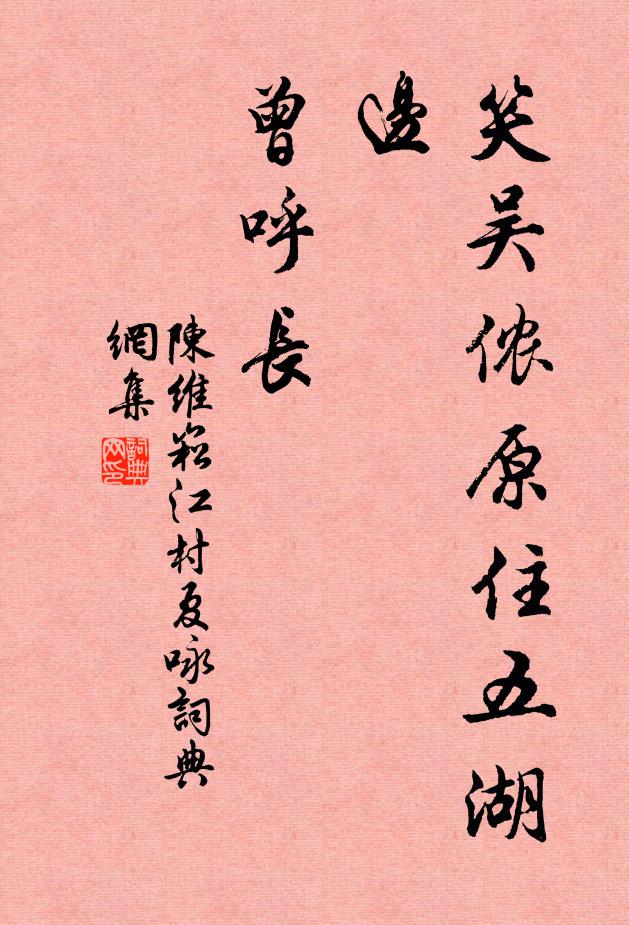 笑吴侬原住五湖
邊
曾呼長
陳維崧江村夏咏詞典
網集
詞典
网印